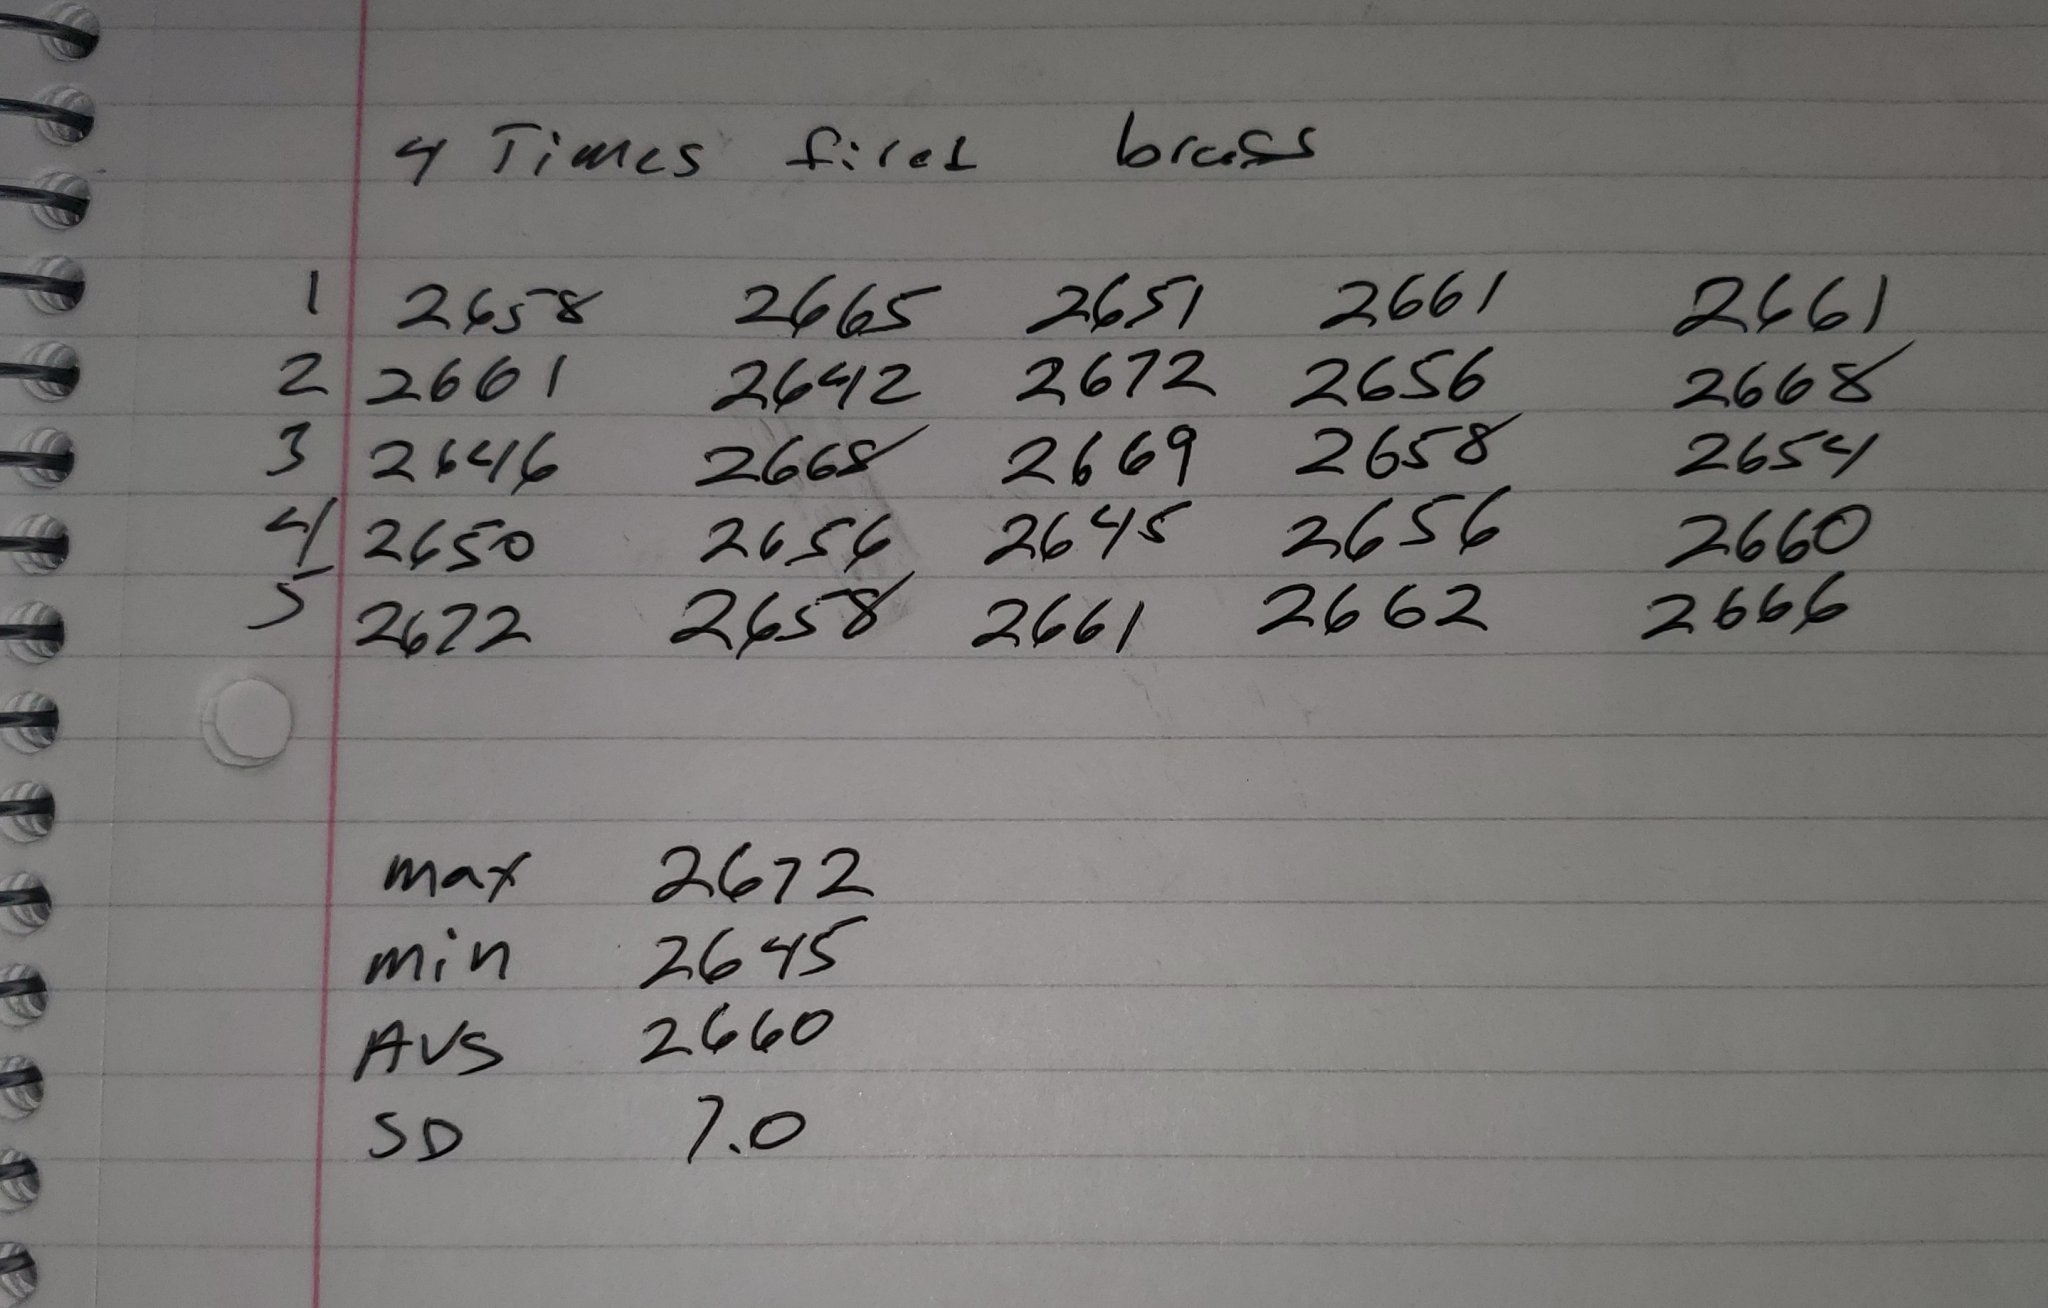 4 Times fired brass
1 2658 2665 2651 2661 2661
2 2661 2642 2672 2656 2668
3 2646 2668 2669 2658 2654
4 2650 2656 2645 2656 2660
5 2672 2658 2661 2662 2666
max 2672
min 2645
AVG 2660
SD 7.0